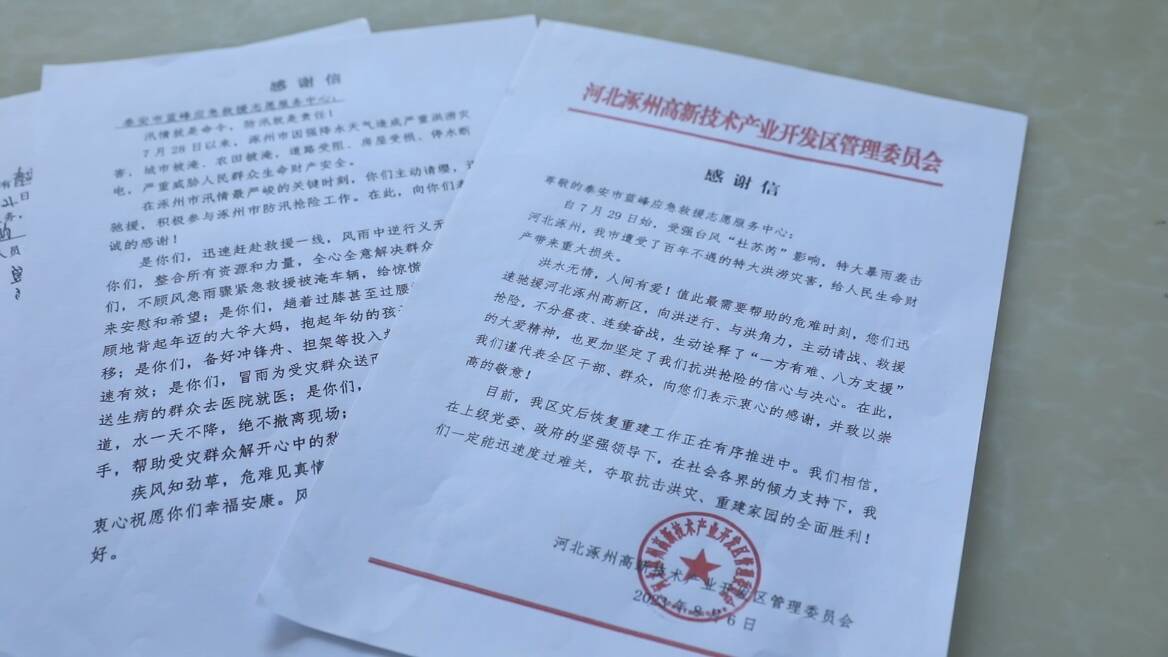 感谢信
泰安市蓝峰应急救援志愿服务中心：
汛情就是命令，防汛就是责任！
7月28日以来，涿州市因强降水天气造成严重洪涝灾
害，城市被淹、农田被淹，道路受阻、房屋受损、停水断
电，严重威胁人民群众生命财产安全。
在涿州市汛情最严峻的关键时刻，你们主动请缨，
驰援，积极参与涿州市防汛抢险工作。在此，向你们
诚的感谢！
是你们，迅速赶赴救援一线，风雨中逆行义无
你们，整合所有资源和力量，全心全意解决群众
们，不顾风急雨骤紧急救援被淹车辆，给惊慌
来安慰和希望；是你们，趟着过膝甚至过腰
顾地背起年迈的大爷大妈，抱起年幼的孩
移；是你们，备好冲锋舟、担架等投入
速有效；是你们，冒雨为受灾群众送
送生病的群众去医院就医；是你们，
道，水一天不降，绝不撤离现场；
手，帮助受灾群众解开心中的愁
疾风知劲草，危难见真情
衷心祝愿你们幸福安康。风
好。
河北涿州高新技术产业开发区管理委员会
感谢信
尊敬的泰安市蓝峰应急救援志愿服务中心：
自7月29日始，受强台风“杜苏芮”影响，特大暴雨袭击
河北涿州，我市遭受了百年不遇的特大洪涝灾害，给人民生命财
产带来重大损失。
洪水无情，人间有爱！值此最需要帮助的危难时刻，您们迅
速驰援河北涿州高新区，向洪逆行、与洪角力，主动请战、救援
抢险，不分昼夜、连续奋战，生动诠释了“一方有难、八方支援”
的大爱精神，也更加坚定了我们抗洪抢险的信心与决心。在此，
我们谨代表全区干部、群众，向您们表示衷心的感谢，并致以崇
高的敬意！
目前，我区灾后恢复重建工作正在有序推进中。我们相信，
在上级党委、政府的坚强领导下，在社会各界的倾力支持下，我
们一定能迅速度过难关，夺取抗击洪灾、重建家园的全面胜利！
河北涿州高新技术产业开发区管理委员会
2023年8月6日